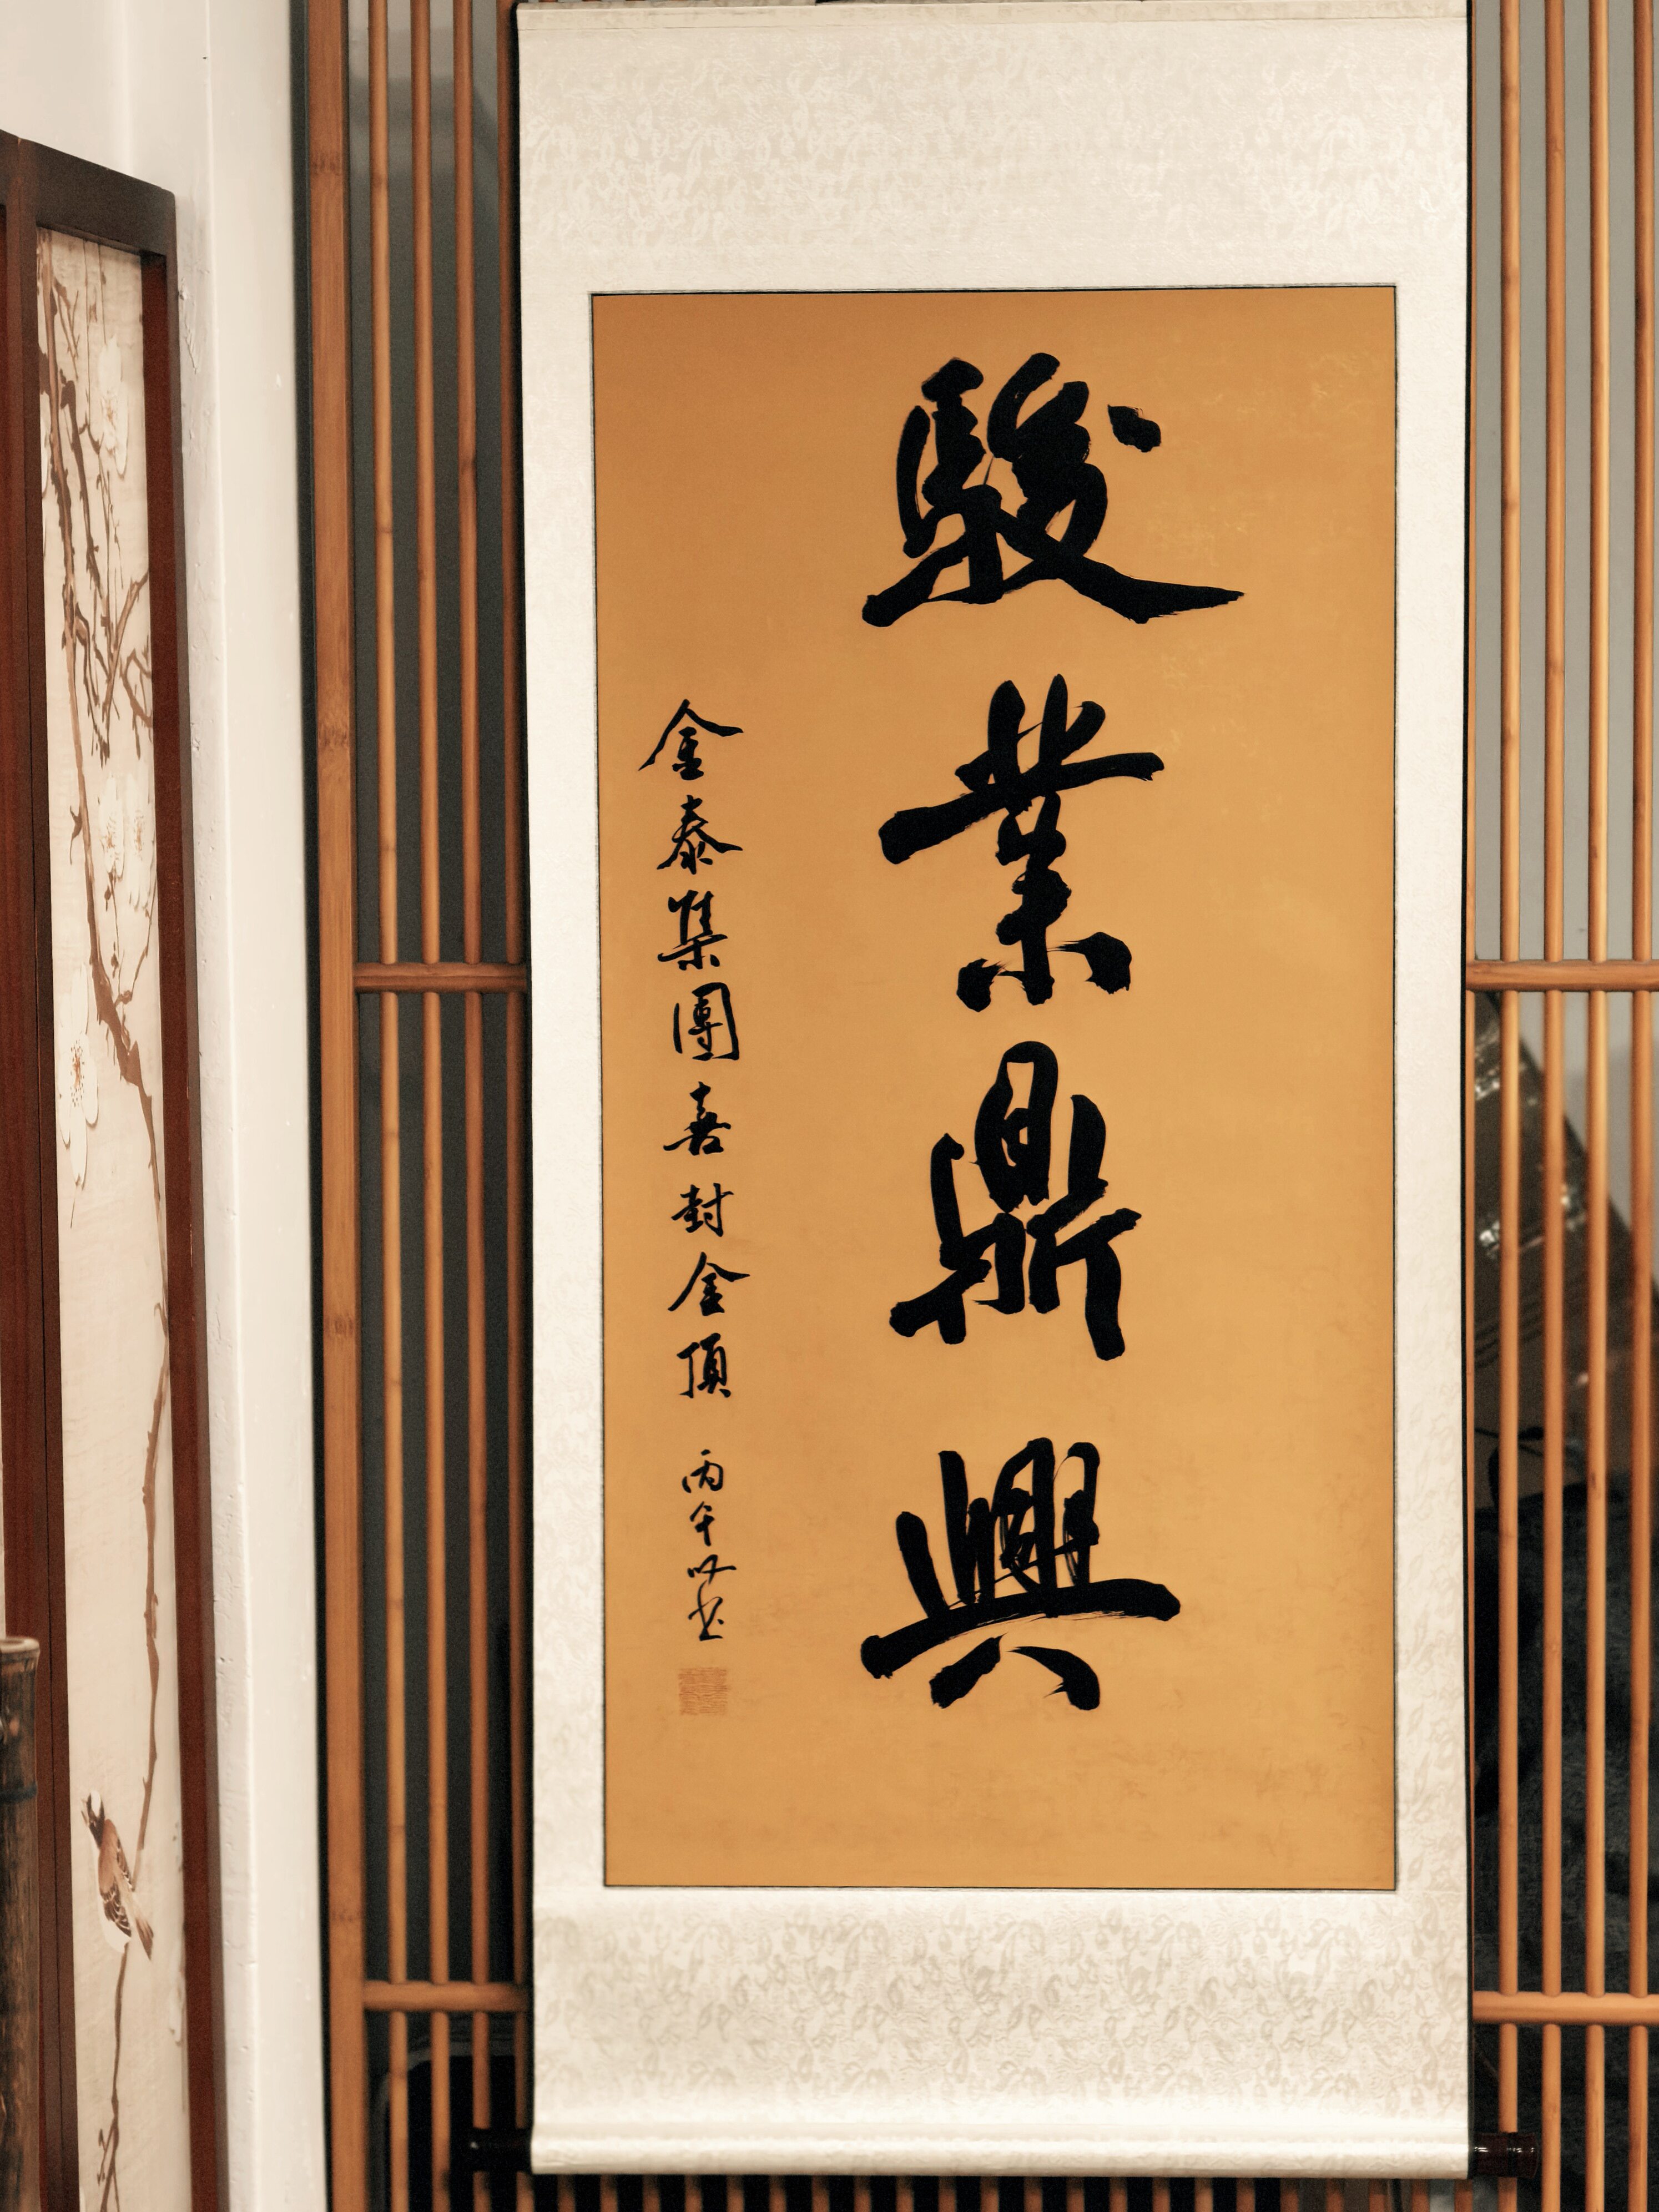 駿業鼎興
金泰集團喜封金頂 丙午 書